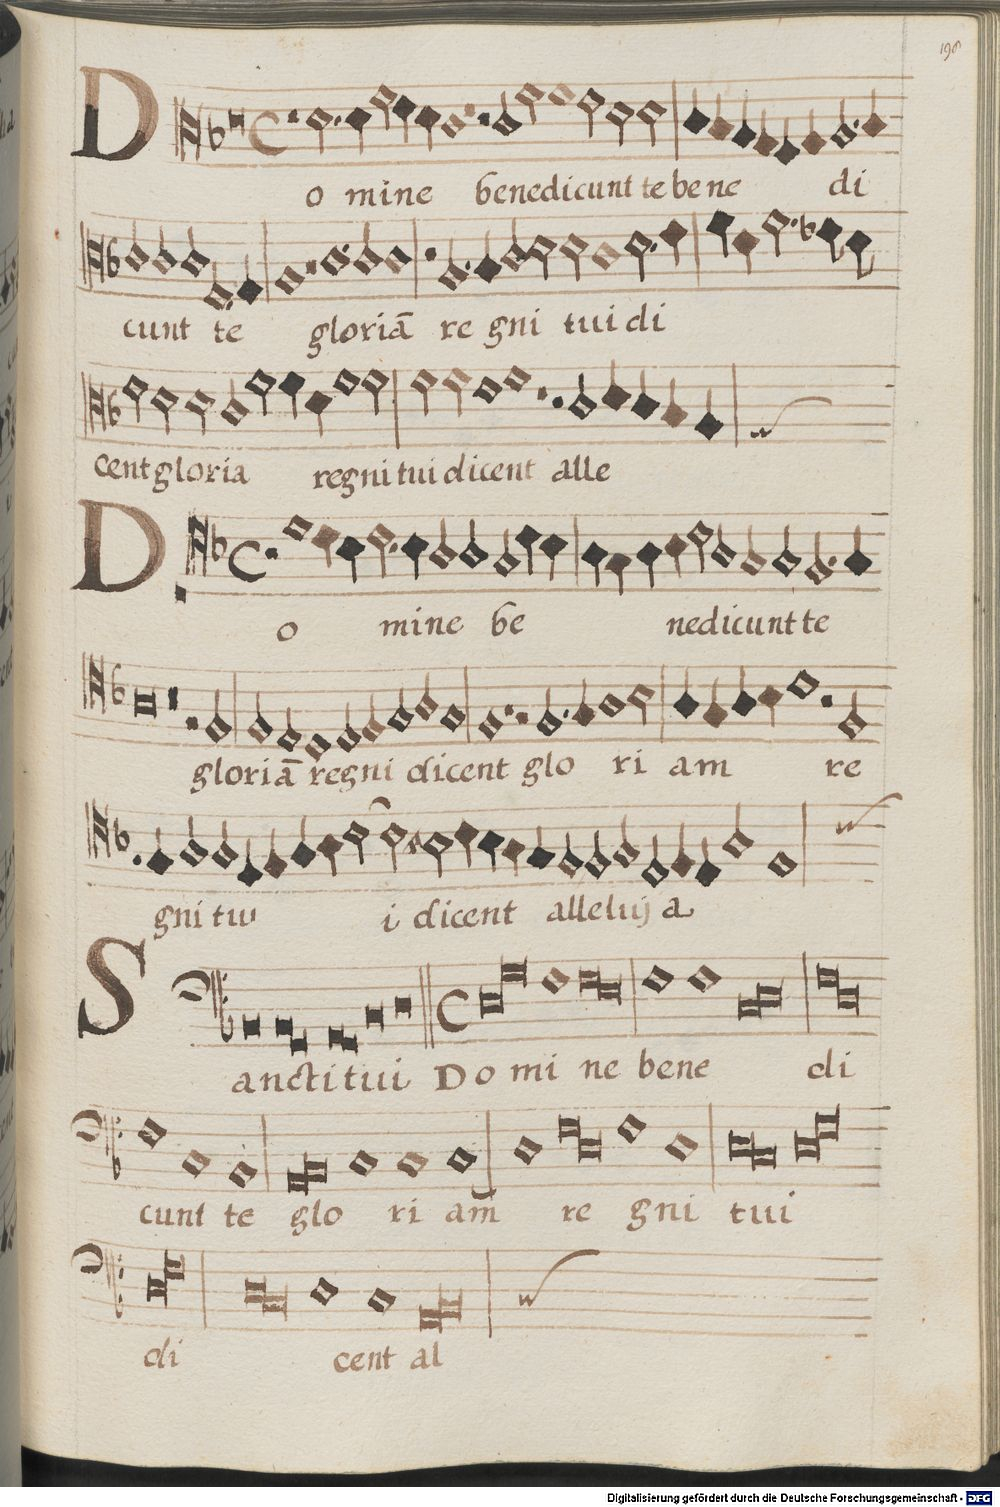 198
Domine benedicunt te bene di
cunt te gloriā regni tui di
cent gloria regni tui dicent alle
Domine be nedicunt te
gloriā regni dicent glo ri am re
gni tui i dicent alleluja
Sancti tui Domine bene di
cunt te glo ri am re gni tui
di cent al
Digitalisierung gefördert durch die Deutsche Forschungsgemeinschaft - DFG